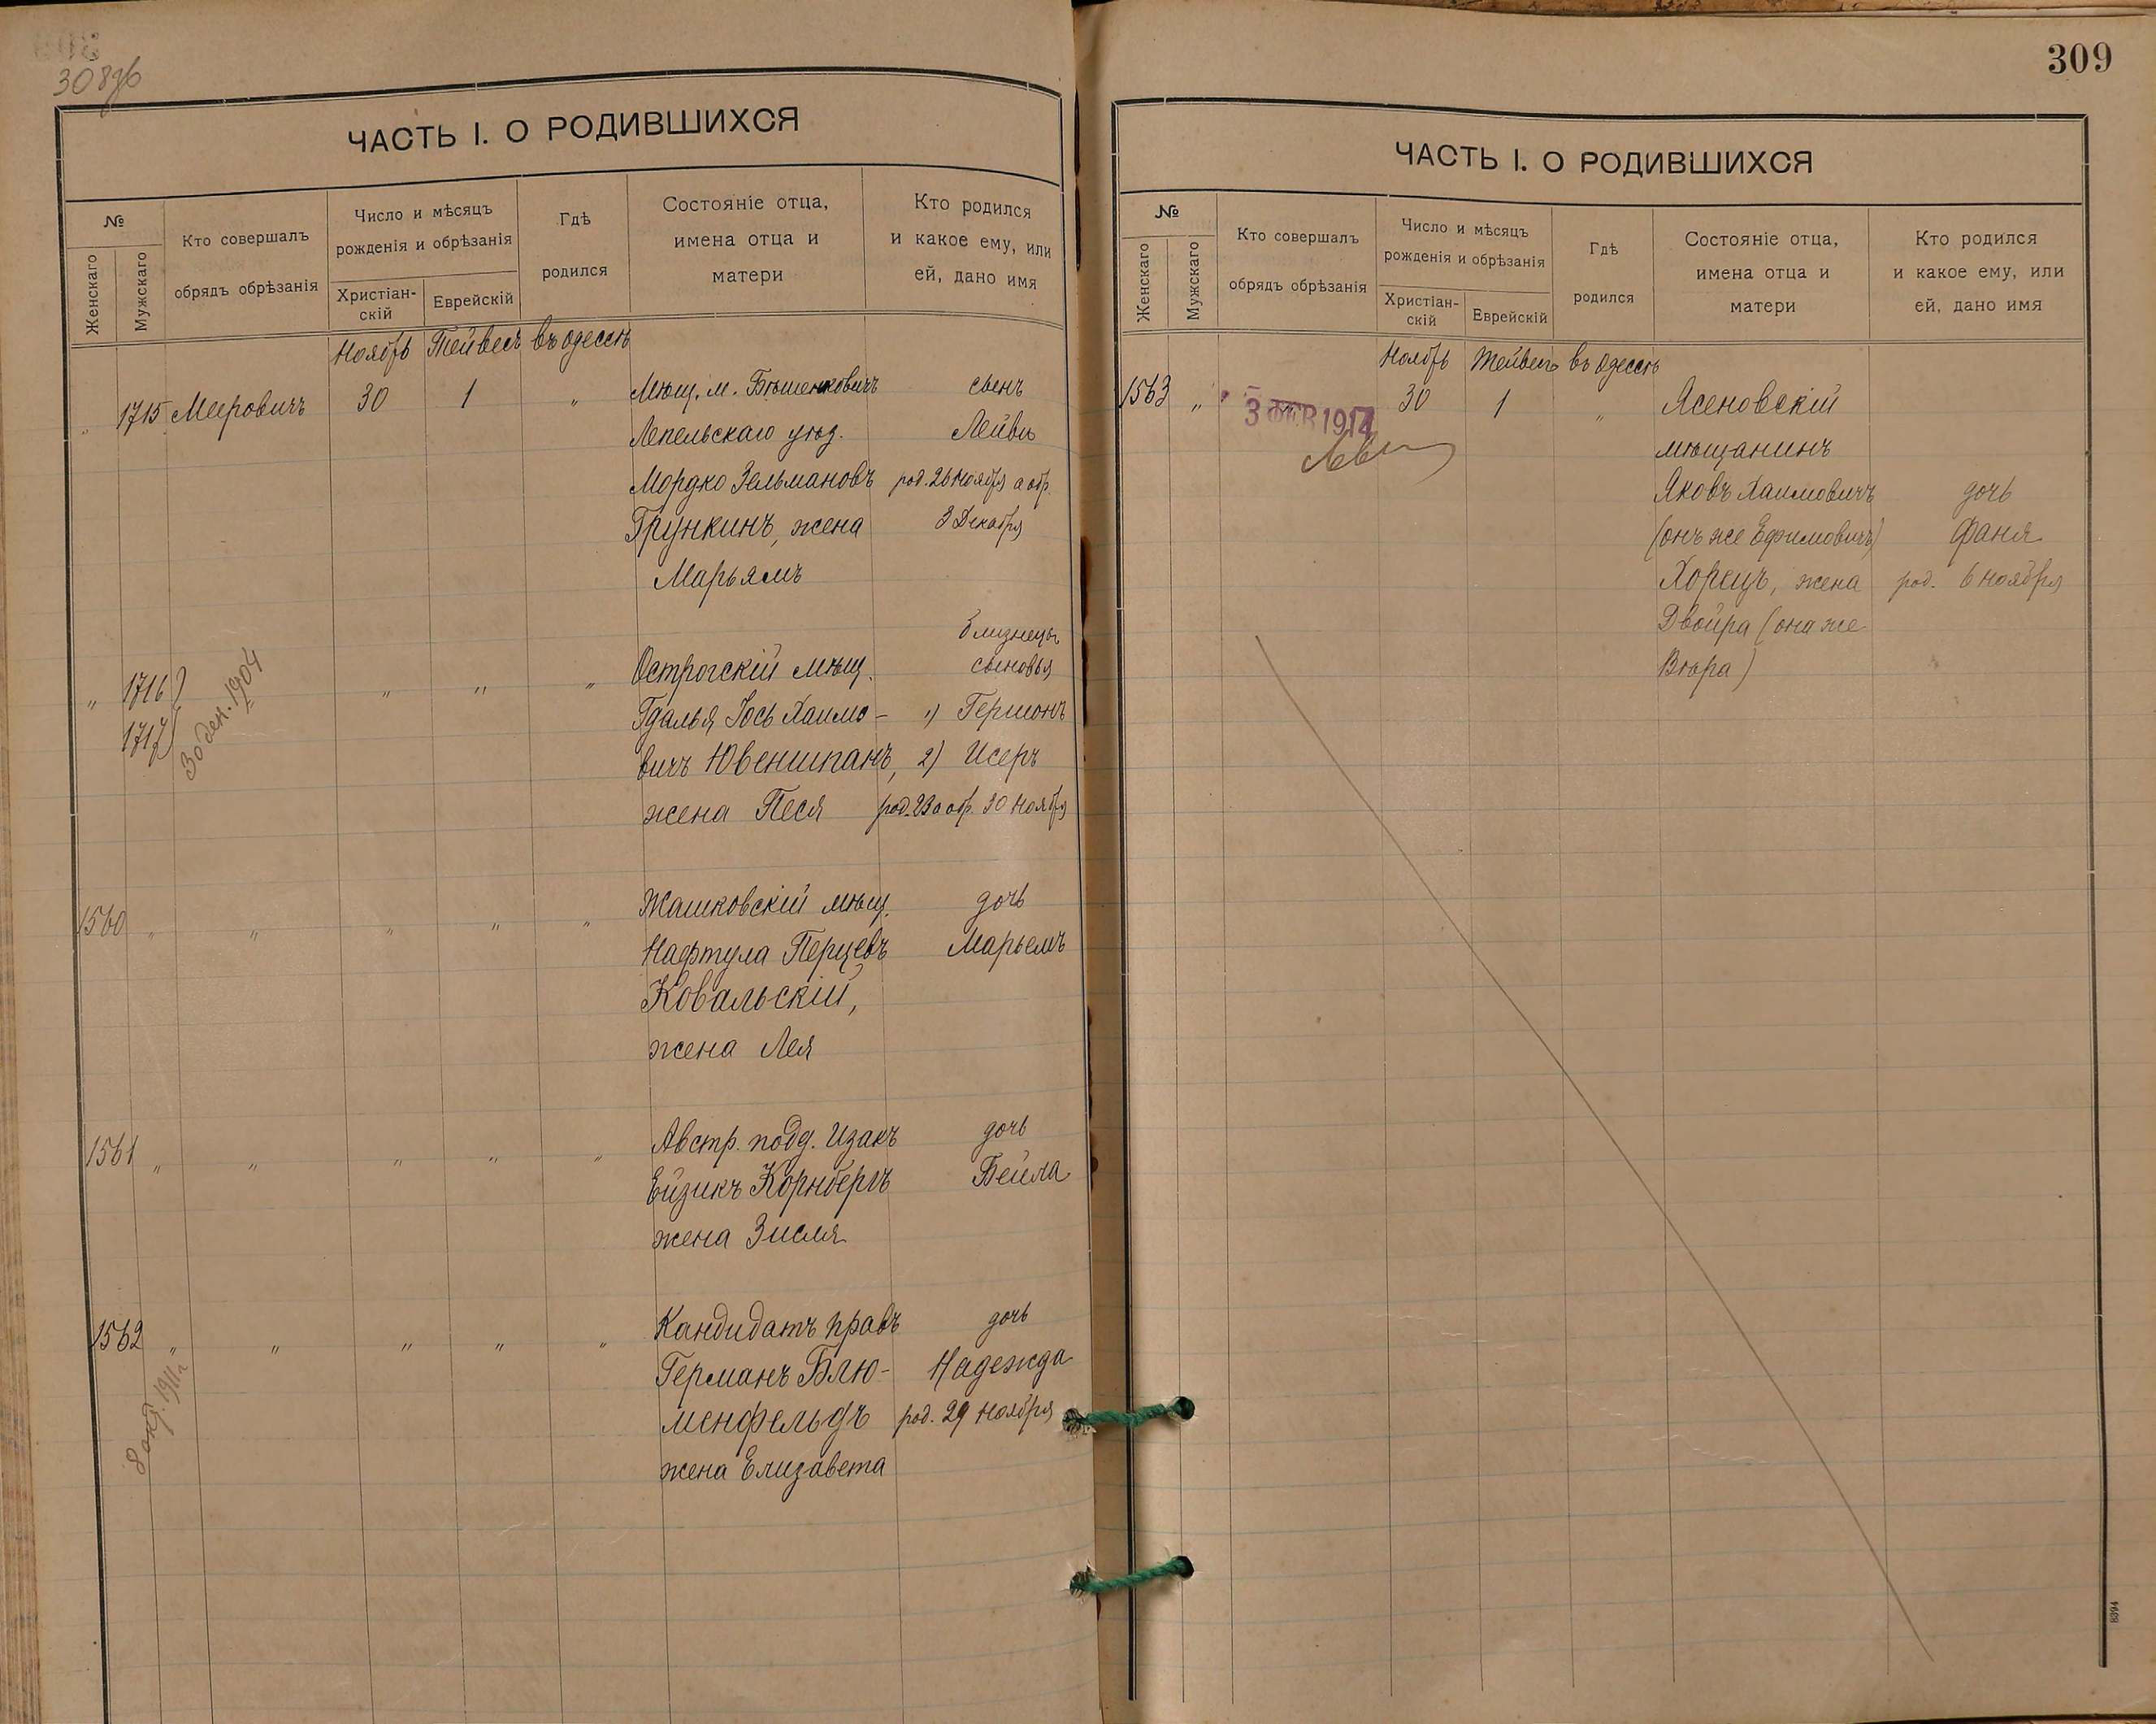 308 об
ЧАСТЬ I. О РОДИВШИХСЯ
№
Женскаго
Мужскаго
Кто совершалъ
обрядъ обрѣзанія
Число и мѣсяцъ
рожденія и обрѣзанія
Христіан-
скій
Еврейскій
Гдѣ
родился
Состояніе отца,
имена отца и
матери
Кто родился
и какое ему, или
ей, дано имя
Ноябрь Тейвесъ въ Одессѣ
" 1715 Меировичъ 30 1 " Мѣщ. м. Бѣшенковичъ сынъ
Лепельскаго уѣз. Лейвъ
Мордко Зельмановъ род. 26 ноября а обр.
Грункинъ, жена 3 Декабря
Марьямъ
близнецы
" 1716 " " " Острогскій мѣщ. сыновья
1717 30 дек. 1904
Гдалья Іось Хаимо- 1) Гершонъ
вичъ Ювеншпанъ, 2) Исеръ
жена Песя род. 23 а обр. 30 ноября
1560 " " " " " Жашковскій мѣщ. дочь
Нафтула Перцевъ Марьемъ
Ковальскій,
жена Лея
1561 " " " " " Австр. подд. Изакъ дочь
Ейзикъ Корнбергъ Бейла
жена Зисля
1562 " " " " " Кандидатъ правъ дочь
8 окт. 1911 г.
Германъ Блю- Надежда
менфельдъ род. 29 ноября
жена Елизавета
309
ЧАСТЬ I. О РОДИВШИХСЯ
№
Женскаго
Мужскаго
Кто совершалъ
обрядъ обрѣзанія
Число и мѣсяцъ
рожденія и обрѣзанія
Христіан-
скій
Еврейскій
Гдѣ
родился
Состояніе отца,
имена отца и
матери
Кто родился
и какое ему, или
ей, дано имя
Ноябрь Тейвесъ въ Одессѣ
1563 " " 30 1 " Ясеновскій
3 ФЕВ 1914
мѣщанинъ
Яковъ Хаимовичъ дочь
(онъ же Ефимовичъ) Фаня
Хорецъ, жена род. 6 ноября
Двойра (она же
Вѣра)
8394